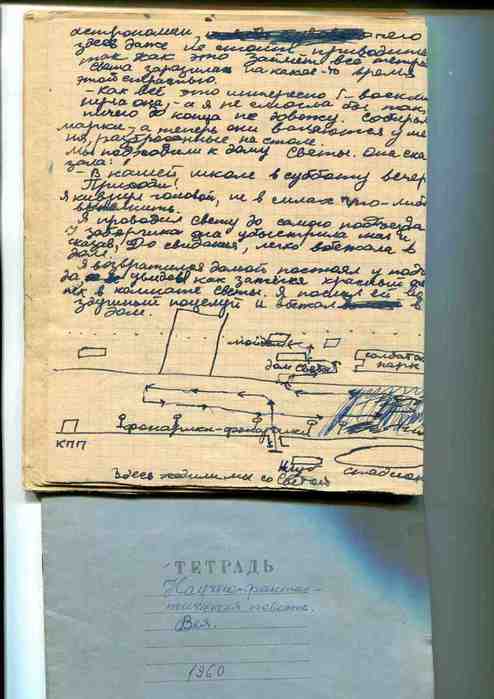 астрономии, него
здесь даже не стоит приводить
так как это займёт всё тетра
Света заразилась на какое-то время
этой страстью.
– Как всё это интересно! – воскли
нула она, – а я не смогла бы так
ничего до конца не довожу. Собирал
марки – а теперь они валяются у ме
ня, разбросанные на столе.
Мы подходили к дому Светы. Она ска
зала:
– В нашей школе в субботу вечер
Приходи!
Я кивнул головой, не в силах что-либо
Я проводил Свету до самого подъезда
У заборчика она
сказав, До свидания, легко вбежала в
дом.
Я возвратился домой постоял у подъ
да увидев как зажёгся красный
в комнате Светы. Я послал ей во
здушный поцелуй и вбежал в
дом.
мой дом
дом Светы
солдатск
парк
фонарики-фонарики
КПП
клуб
стадион
Здесь ходили мы со Светой
ТЕТРАДЬ
Научно-фантас-
тическая повесть.
Вея.
1960